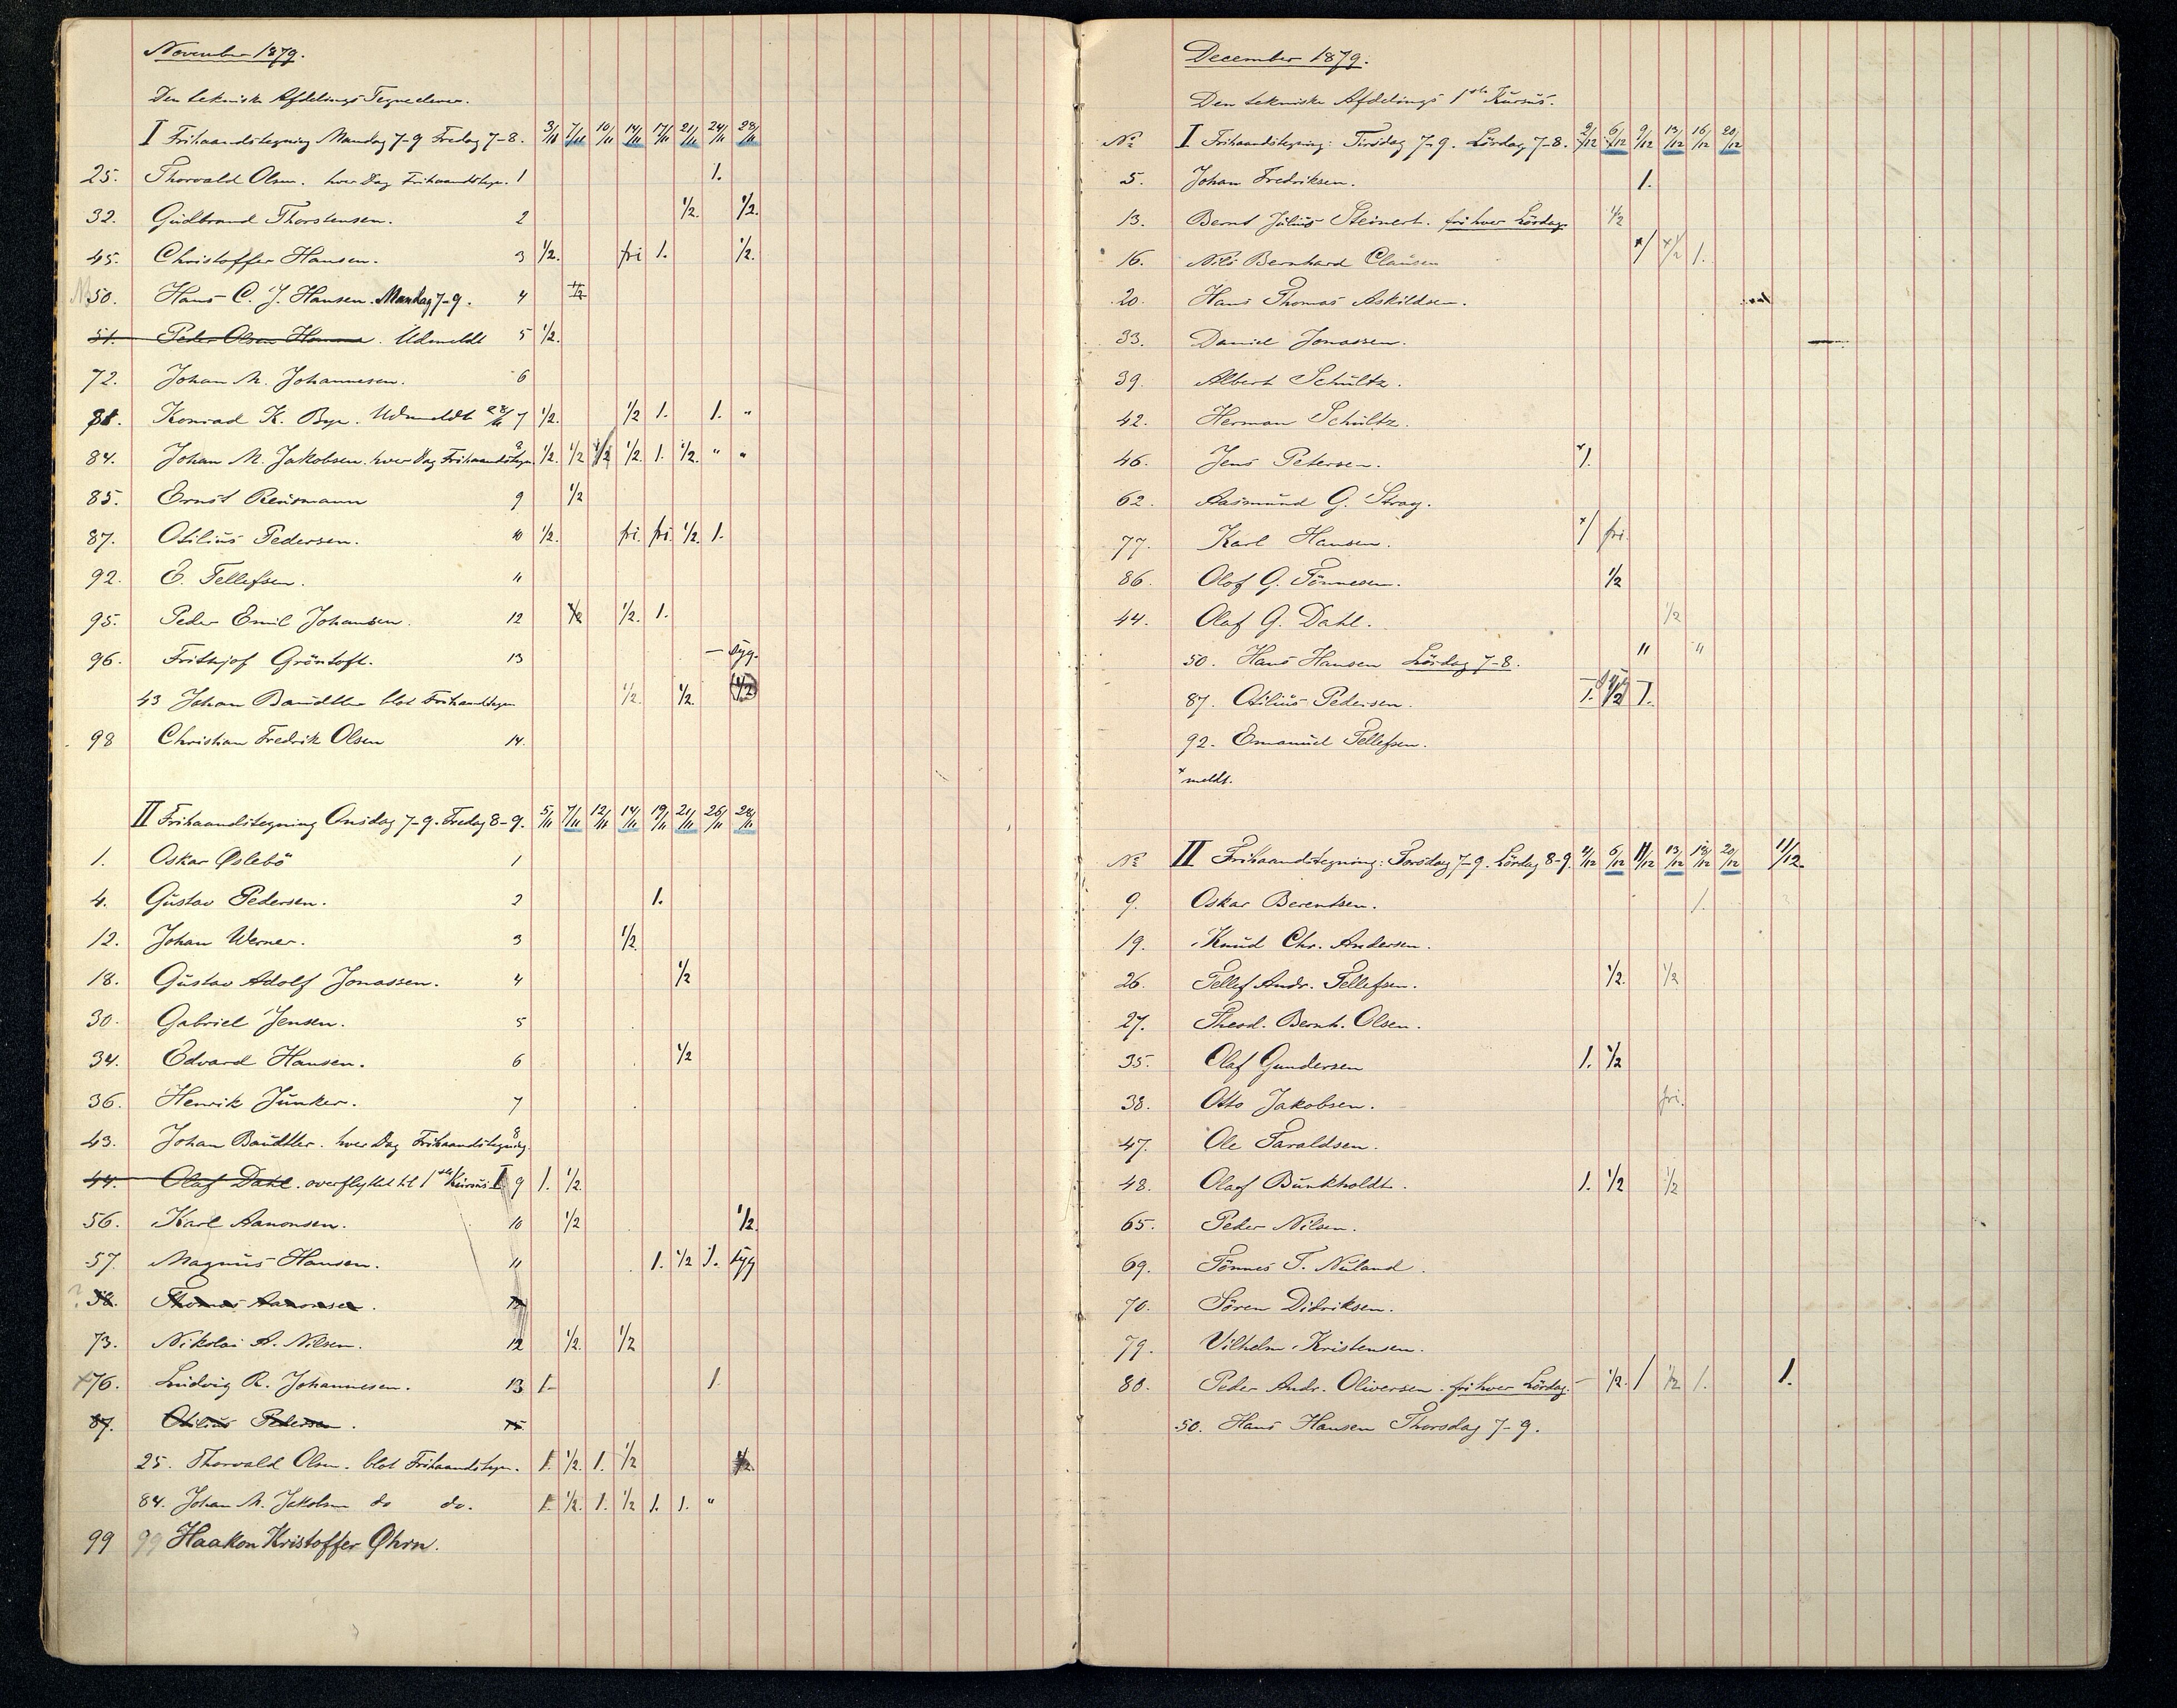 November 1879.
Den tekniske Afdelings Tegneelever.
I Frihaandstegning Mandag 7-9 Fredag 7-8. 3/11 7/11 10/11 14/11 17/11 21/11 24/11 28/11
25. Thorvald Olsen. hver Dag Frihaandstegn. 1 1.
32. Gudbrand Thorstensen. 2 1/2. 1/2.
45. Christoffer Hansen. 3 1/2. fri 1. 1/2.
50. Hans C. J. Hansen. Mandag 7-9. 4 1/2
51. Peder Olsen. Udmeldt 5 1/2.
72. Johan M. Johannesen. 6
81. Konrad K. Bye. Udmeldt 28/11 7 1/2. 1/2 1. 1. "
84. Johan M. Jakobsen. hver Dag Frihaandstegn. 8 1/2. 1/2 1/2 1/2. 1. 1/2. " "
85. Ernst Reusmann 9 1/2
87. Otilius Pedersen. 10 1/2. fri. fri. 1/2. 1.
92. E. Tellefsen. 11
95. Peder Emil Johansen. 12 1/2 1/2. 1.
96. Frithjof Gröntoft. 13 — syg.
43 Johan Baudtler blot Frihaandstegn 1/2. 1/2. 1/2
98 Christian Fredrik Olsen 14.
II Frihaandstegning Onsdag 7-9. Fredag 8-9. 5/11 7/11 12/11 14/11 19/11 21/11 26/11 28/11
1. Oskar Øslebö 1
4. Gustav Pedersen. 2 1.
12. Johan Werner. 3 1/2
18. Gustav Adolf Jonassen. 4 1/2
30. Gabriel Jensen. 5
34. Edvard Hansen. 6 1/2
36. Henrik Junker. 7
43. Johan Baudtler. hver Dag Frihaandstegning. 8
44. Olaf Dahl. overflyttet til 1ste Kursus I 9 1. 1/2.
56. Karl Aanonsen. 10 1/2 1/2.
57. Magnus Hansen. 11 1. 1/2 1. syg
? 58. Thomas Aanonsen. 12
73. Nikolai A. Nilsen. 12 1/2. 1/2
x76. Ludvig R. Johannesen. 13 1- 1.
87. Otilius Pedersen. 15
25. Thorvald Olsen. blot Frihaandstegn. 1. 1/2. 1. 1/2 1/2.
84. Johan M. Jakobsen do do. 1. 1/2. 1. 1/2 1. 1. "
99 99 Haakon Kristoffer Øhrn.
December 1879.
Den tekniske Afdelings 1ste Kursus.
No I Frihaandstegning: Tirsdag 7-9. Lördag 7-8. 2/12 6/12 9/12 13/12 16/12 20/12
5. Johan Fredriksen. 1.
13. Bernt Julius Steinert. fri hver Lördag 1/2
16. Nils Bernhard Clausen x/ x1/2 1.
20. Hans Thomas Askildsen.
33. Daniel Jonassen. —
39. Albert Schultz.
42. Herman Schultz.
46. Jens Petersen. x1.
62. Aasmund G. Stray.
77. Karl Hansen. x/ fri.
86. Olof G. Tönnesen. 1/2
44. Olaf G. Dahl. 1/2
50. Hans Hansen Lördag 7-8. " "
87. Otilius Pedersen. 1. 1/2 1.
92. Emanuel Tellefsen.
x meldt.
No II Frihaandstegning: Torsdag 7-9. Lördag 8-9. 4/12 6/12 11/12 13/12 18/12 20/12 11/12.
9. Oskar Berentsen. 1.
19. Knud Chr. Andersen.
26. Tellef Andr. Tellefsen. 1/2. 1/2
27. Theod. Bernh. Olsen.
35. Olaf Gundersen 1. 1/2
38. Otto Jakobsen. fri.
47. Ole Taraldsen.
48. Olaf Bunkholdt. 1. 1/2 1/2
65. Peder Nilsen.
69. Tönnes T. Nuland.
70. Sören Didriksen.
79. Vilhelm Kristensen.
80. Peder Andr. Oliversen. fri hver Lördag. — 1/2. 1 1/2 1. 1.
50. Hans Hansen Thorsdag 7-9.